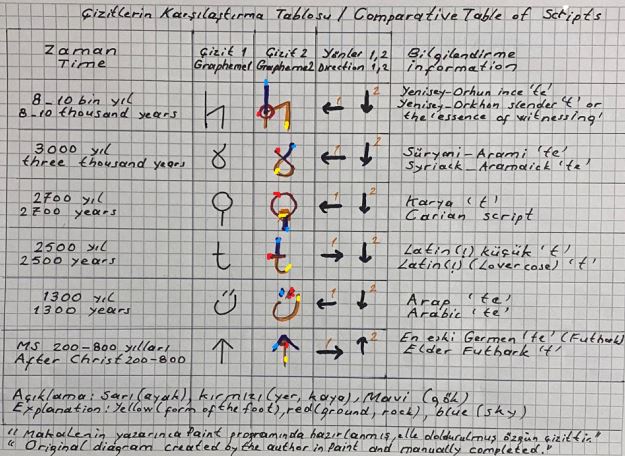 Çizitlerin Karşılaştırma Tablosu / Comparative Table of Scripts
Zaman
Time
Çizit 1
Grapheme1
Çizit 2
Grapheme2
Yönler 1,2
Direction 1,2
Bilgilendirme
information
8-10 bin yıl
8-10 thousand years
1
2
Yenisey-Orhun ince 'te'
Yenisey-Orkhon slender 't' or
the 'essence of witnessing'
3.000 yıl
three thousand years
1
2
Süryani-Arami 'te'
Syriack-Aramaick 'te'
2700 yıl
2700 years
1
2
Karya 't'
Carian script
2500 yıl
2500 years
t
t
1
2
Latin(!) küçük 't'
Latin(!) (Lovercose) 't'
1300 yıl
1300 years
1
2
Arap 'te'
Arabic 'te'
MS 200-800 yılları
After Christ 200-800
1
2
En eski Germen 'te' (Futhark)
Elder Futhark 't'
Açıklama: Sarı(ayak), kırmızı(yer, kaya), Mavi (gök)
Explanation: Yellow(form of the foot), red(ground, rock), blue (sky)
"Makalenin yazarınca Paint programında hazırlanmış, elle doldurulmuş özgün çizittir."
"Original diagram created by the author in Paint and manually completed."